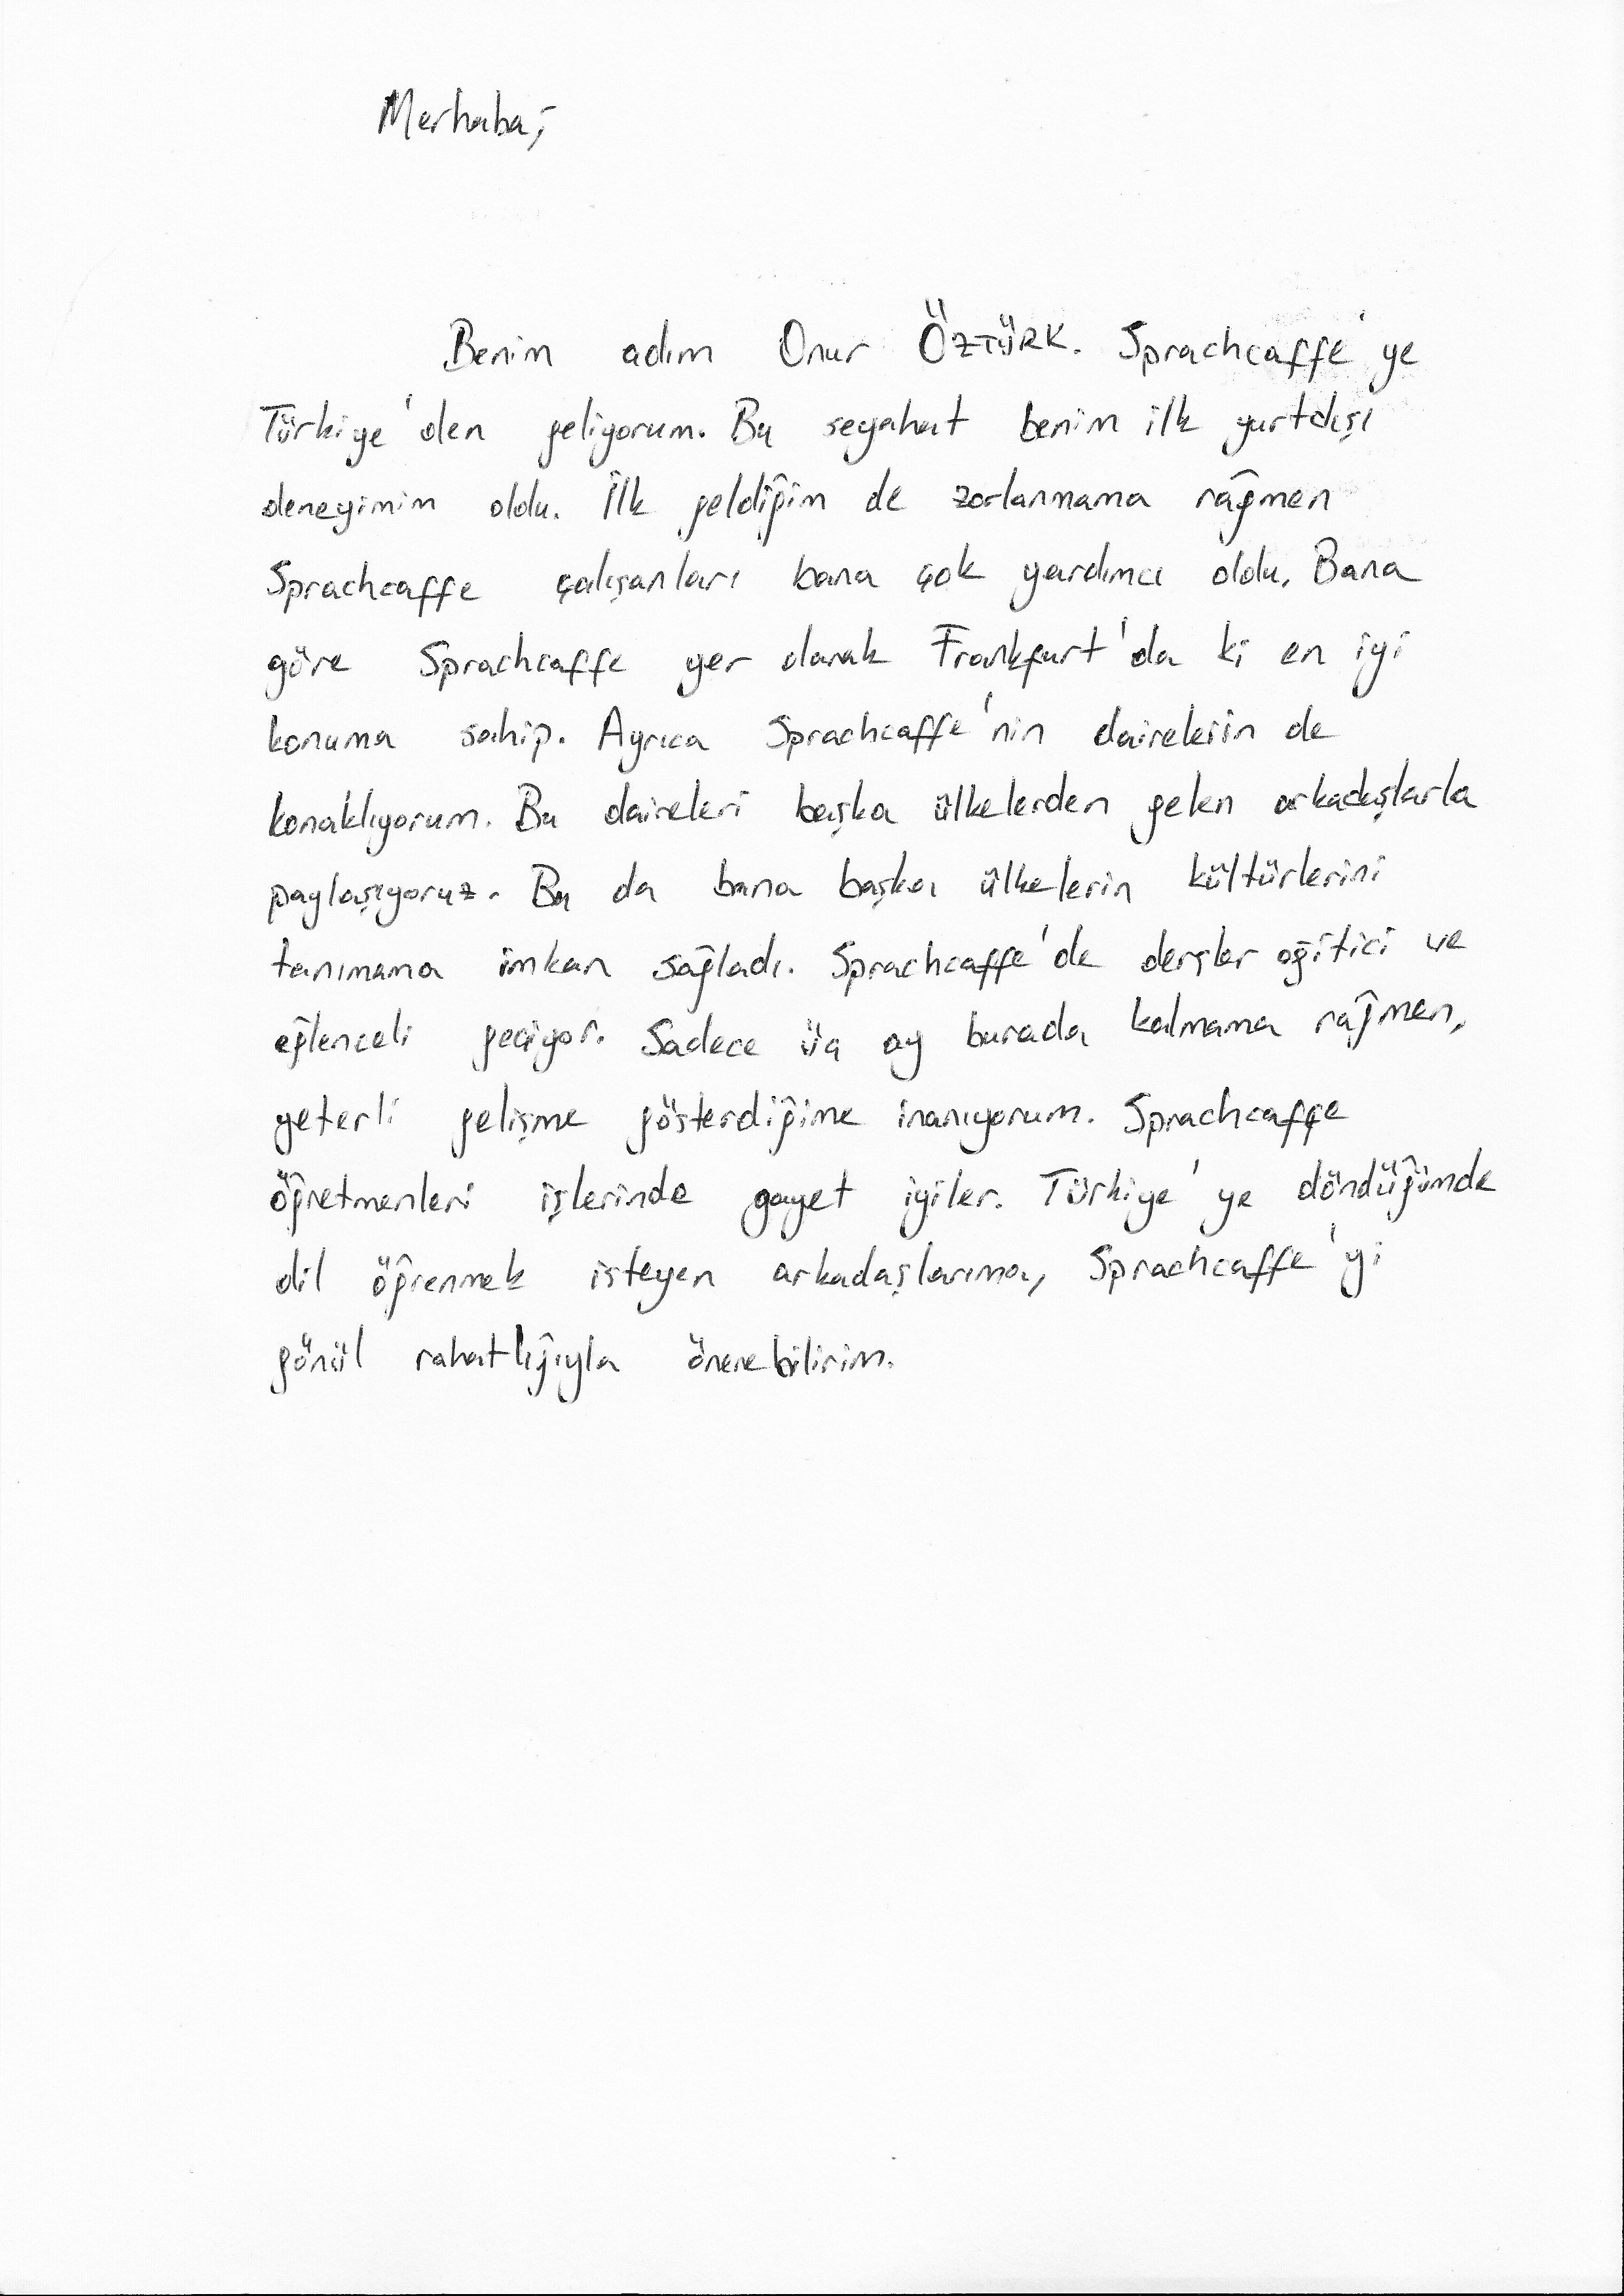 Merhaba;
Benim adım Onur ÖZTÜRK. Sprachcaffe'ye
Türkiye'den geliyorum. Bu seyahat benim ilk yurtdışı
deneyimim oldu. İlk geldiğim de zorlanmama rağmen
Sprachcaffe çalışanları bana çok yardımcı oldu. Bana
göre Sprachcaffe yer olarak Frankfurt'da ki en iyi
konuma sahip. Ayrıca Sprachcaffe'nin dairelerin de
konaklıyorum. Bu daireleri başka ülkelerden gelen arkadaşlarla
paylaşıyoruz. Bu da bana başka ülkelerin kültürlerini
tanımama imkan sağladı. Sprachcaffe'de dersler eğitici ve
eğlenceli geçiyor. Sadece üç ay burada kalmama rağmen,
yeterli gelişme gösterdiğime inanıyorum. Sprachcaffe
öğretmenleri işlerinde gayet iyiler. Türkiye'ye döndüğümde
dil öğrenmek isteyen arkadaşlarıma, Sprachcaffe'yi
gönül rahatlığıyla önerebilirim.